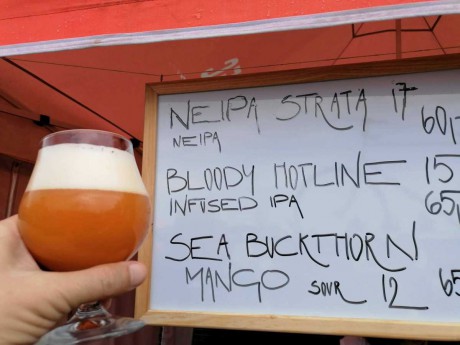 NEIPA STRATA 17
NEIPA 60,
BLOODY HOTLINE 15
INFUSED IPA 65,
SEA BUCKTHORN
MANGO SOUR 12 65